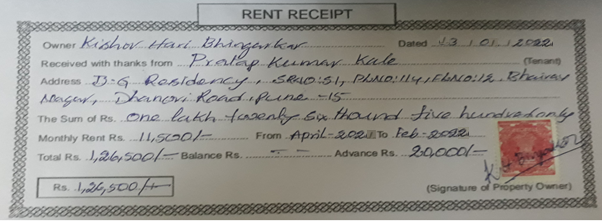 RENT RECEIPT
Owner Kishor Hari Bhingarkar Dated 13/01/2022
Received with thanks from Pratap Kumar Kale (Tenant)
Address D-G Residency, SRNO:51, PLNO:114, FLNO:12, Bhairav
Nagar, Dhanori Road, Pune -15
The Sum of Rs. one lakh twenty six thound five hundred only
Monthly Rent Rs. 11,500/- From April-2021 To Feb-2022
Total Rs. 1,26,500/- Balance Rs. -- Advance Rs. 20,000/-
Rs. 1,26,500/- (Signature of Property Owner)